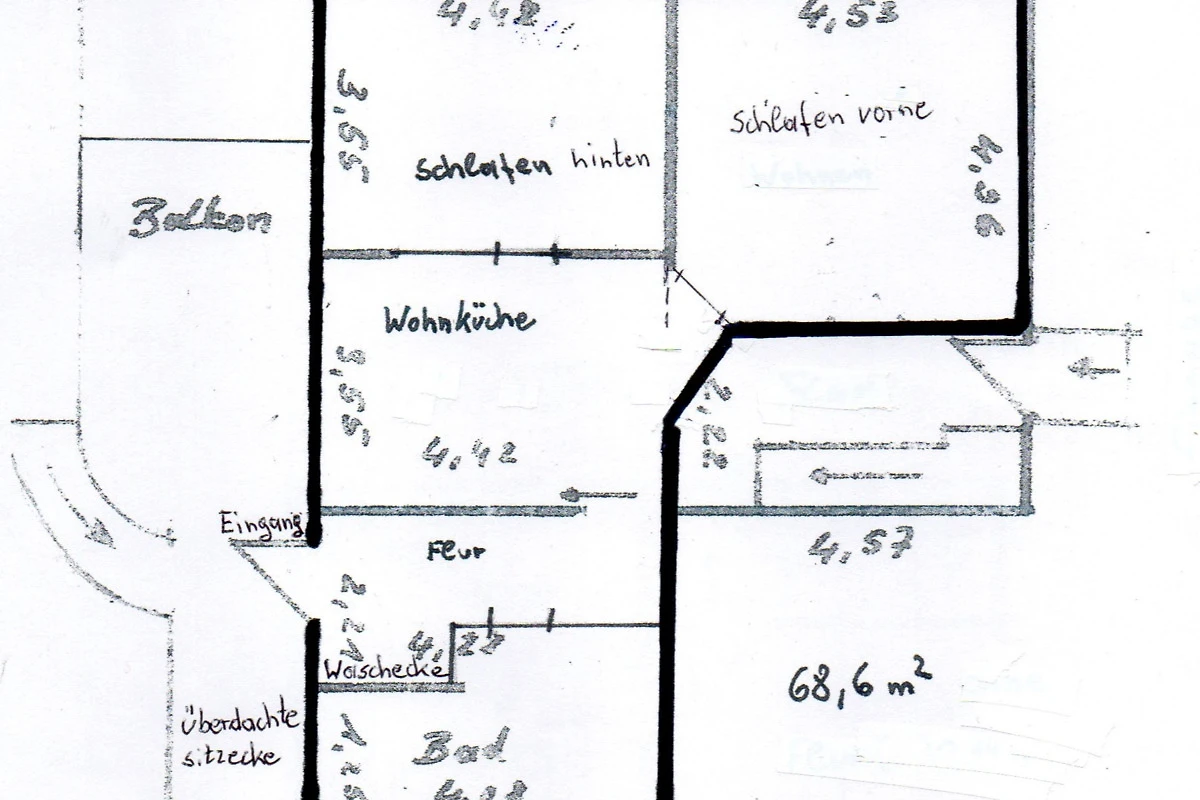 4,42
4,53
3,55
schlafen hinten
schlafen vorne
4,96
Balkon
Wohnküche
3,55
4,42
2,22
Eingang
Flur
4,57
Waschecke
68,6 m²
überdachte
sitzecke
Bad